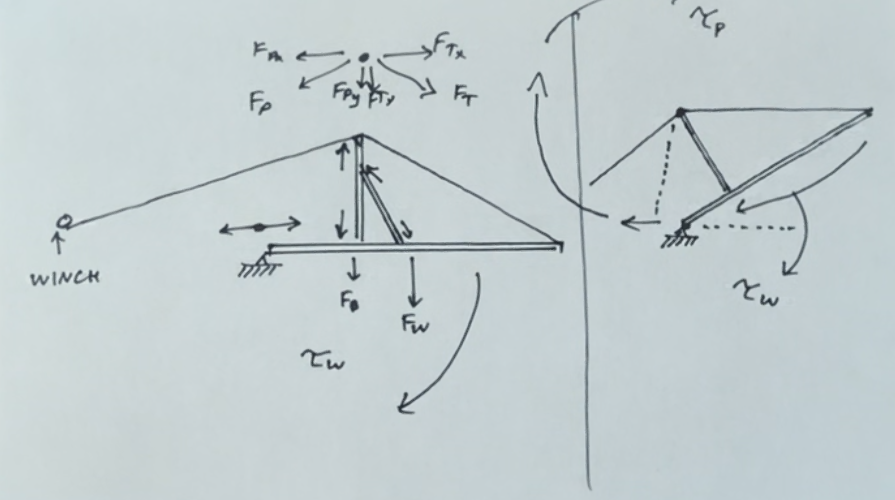 F_Px F_Tx
F_P F_Py F_Ty F_T
τ_P
WINCH
F_B
F_W
τ_W
τ_W